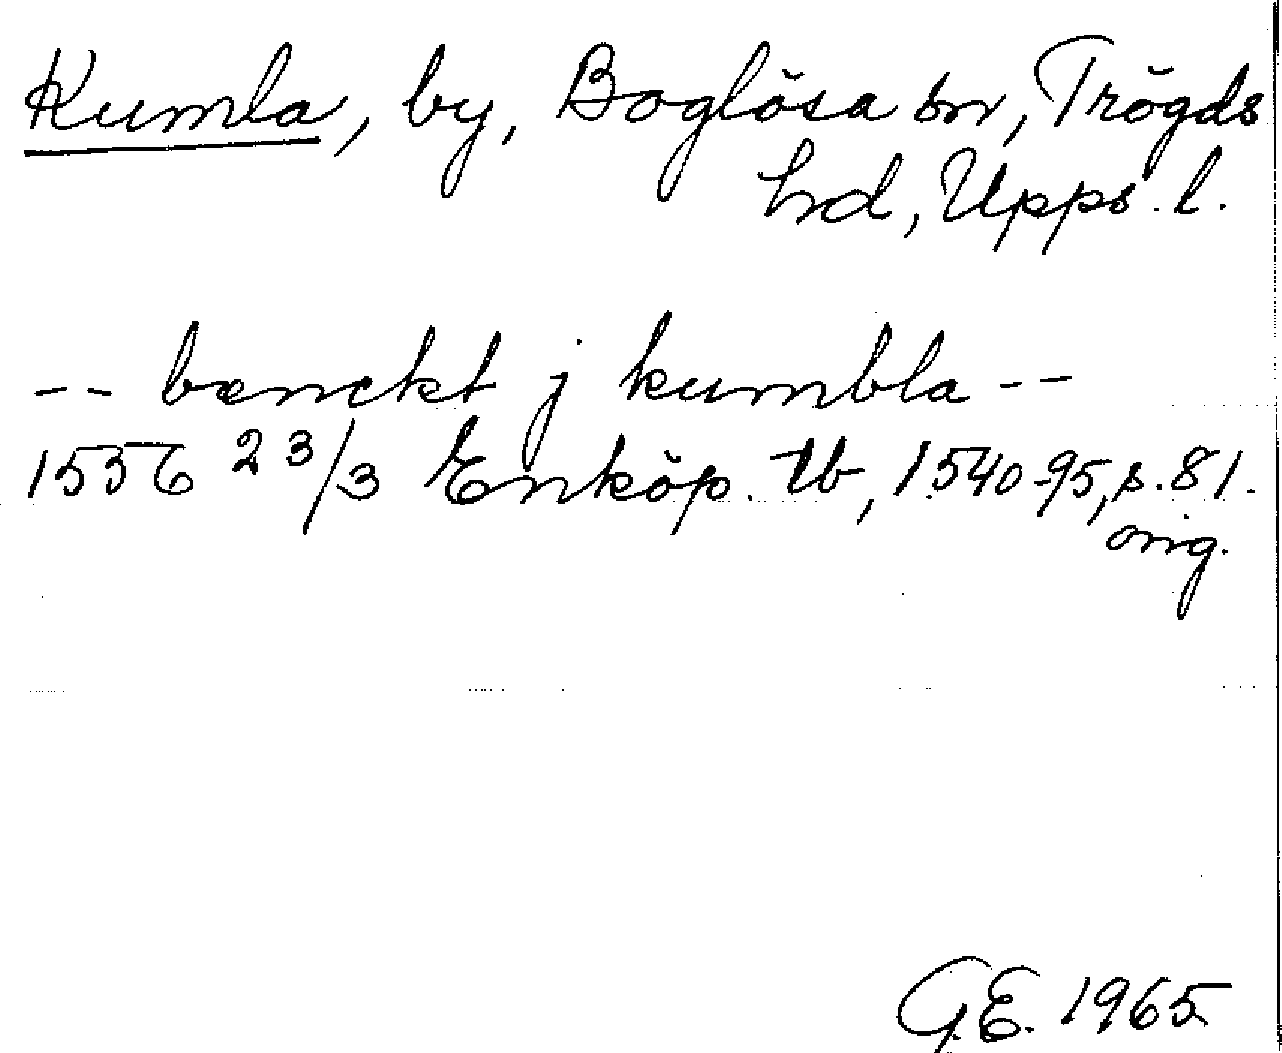 Kumla, by, Boglösa sn, Trögds
hd, Upps. l.
-- bænckt j kumbla --
1556 23/3 Enköp. tb, 1540-95, s. 81.
orig.
G.E. 1965